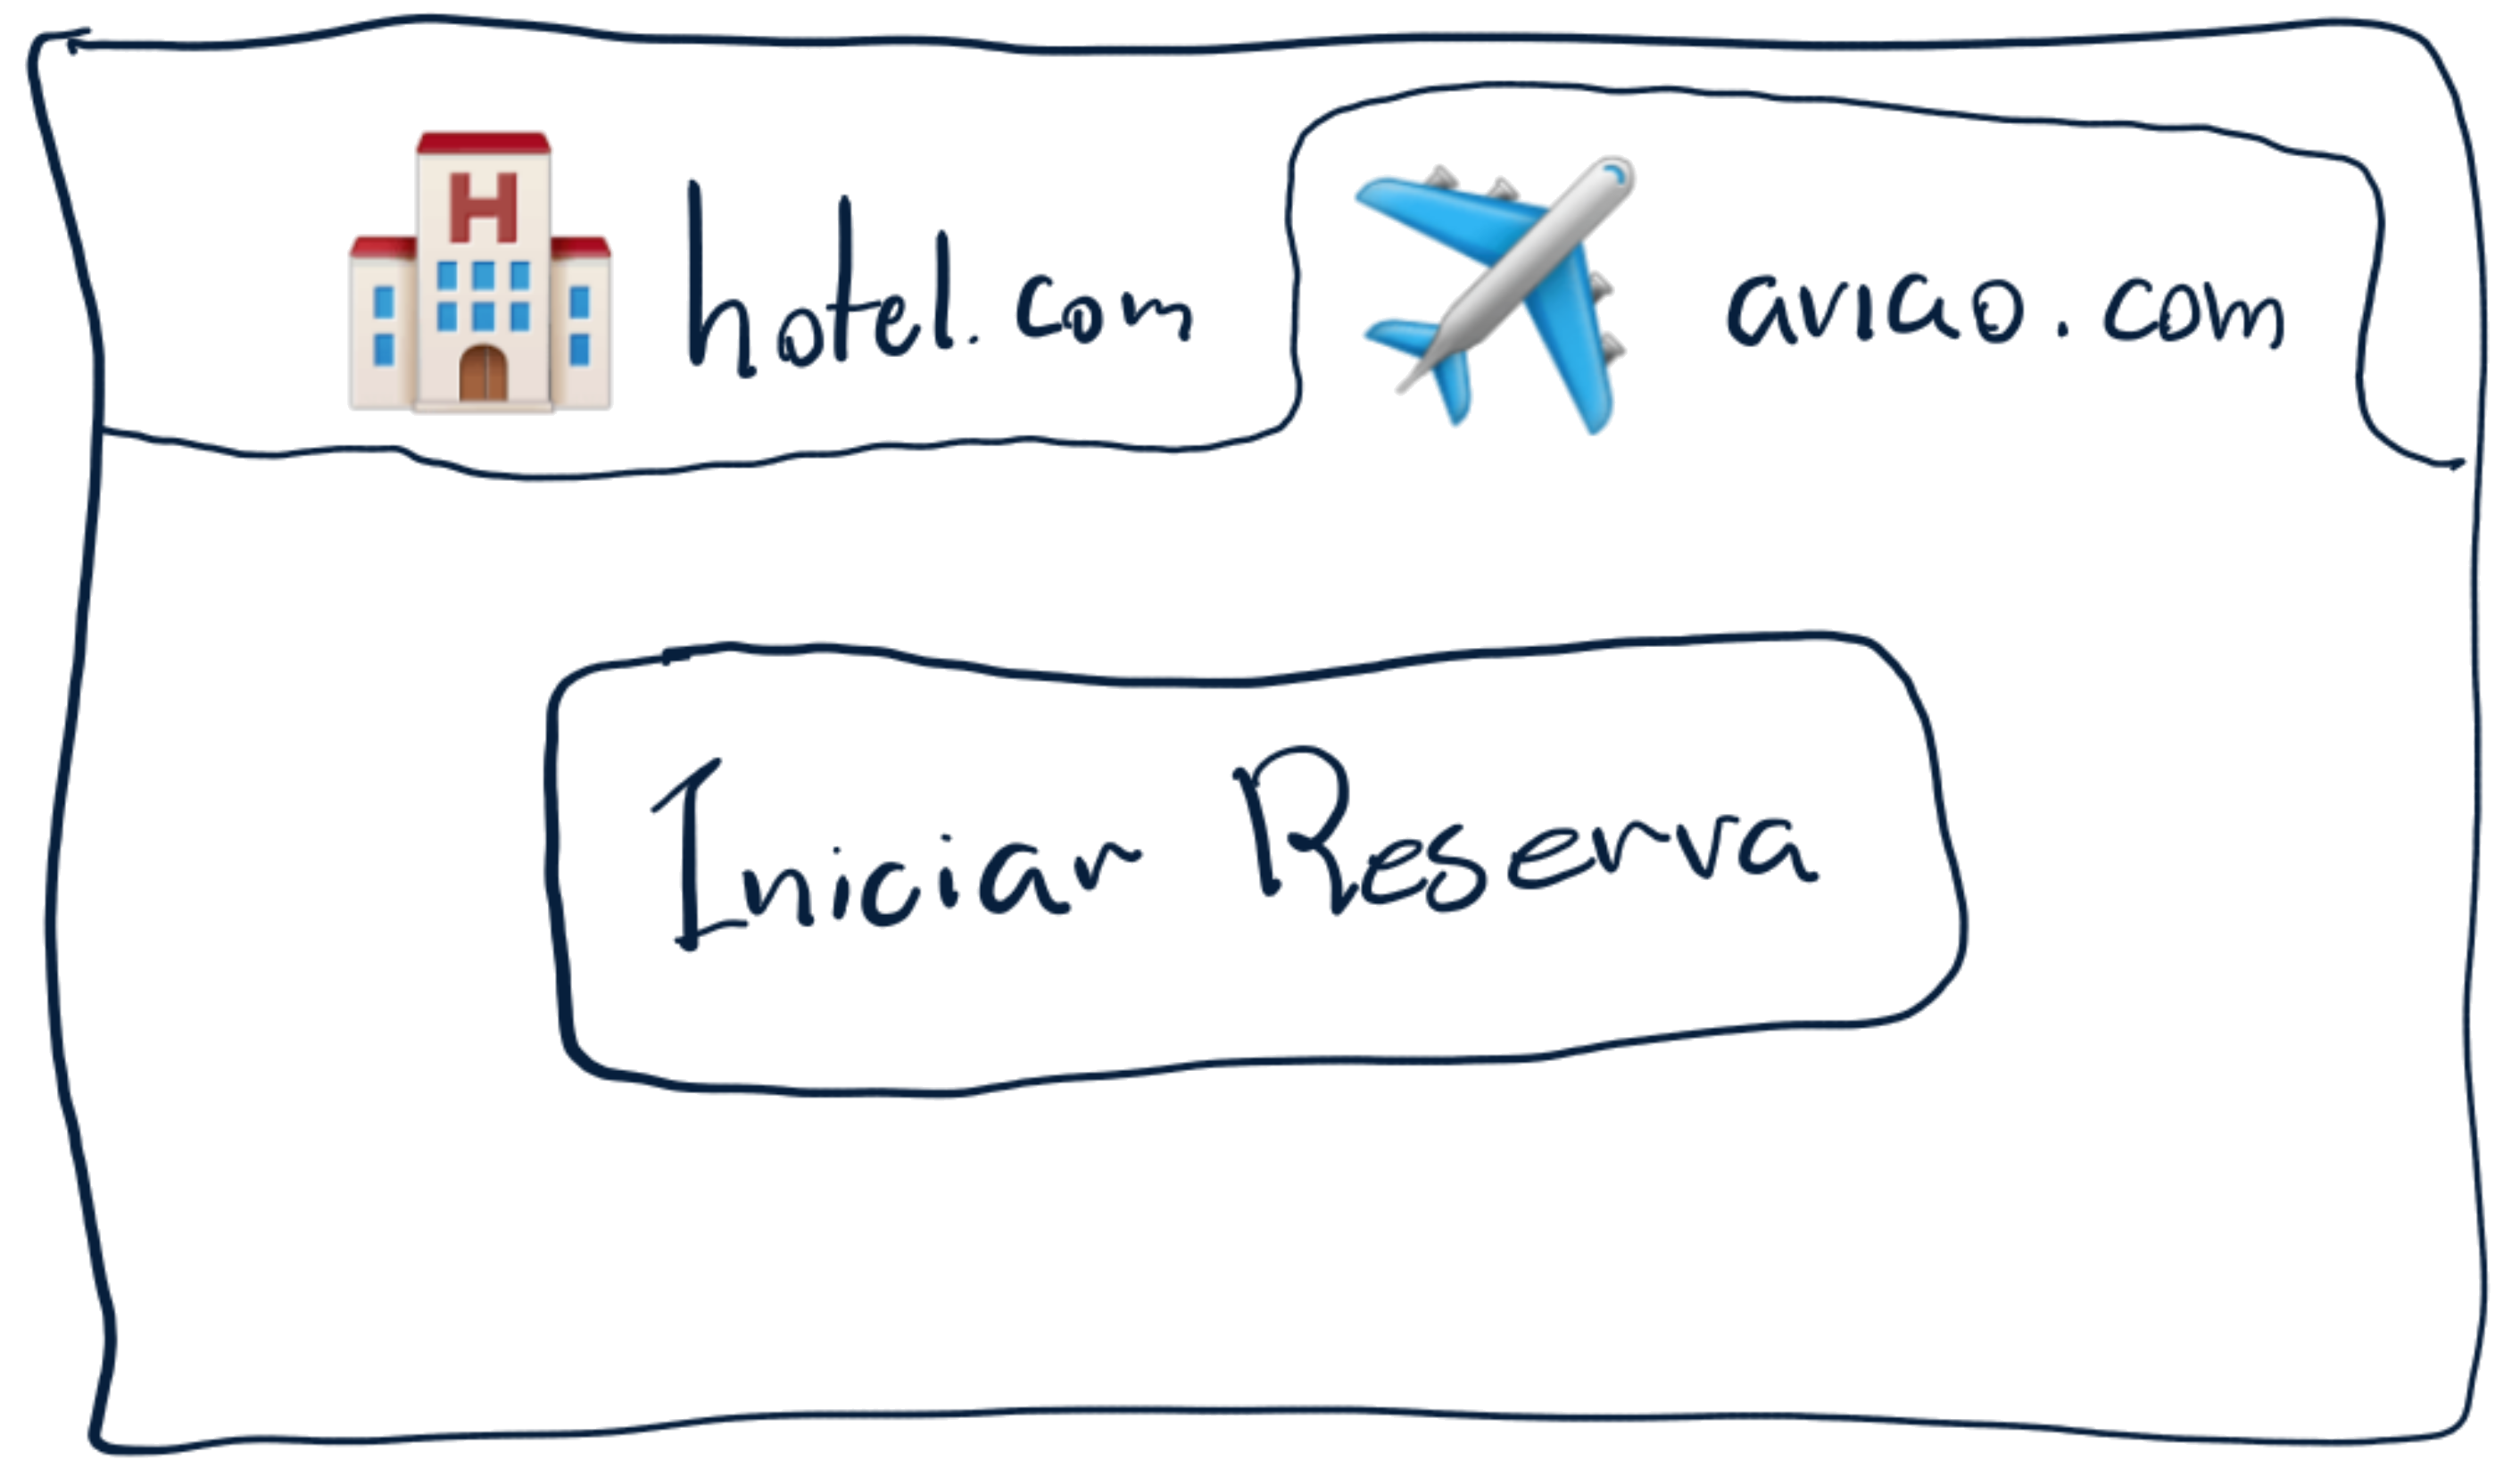 H
hotel.com
aviao.com
Iniciar Reserva